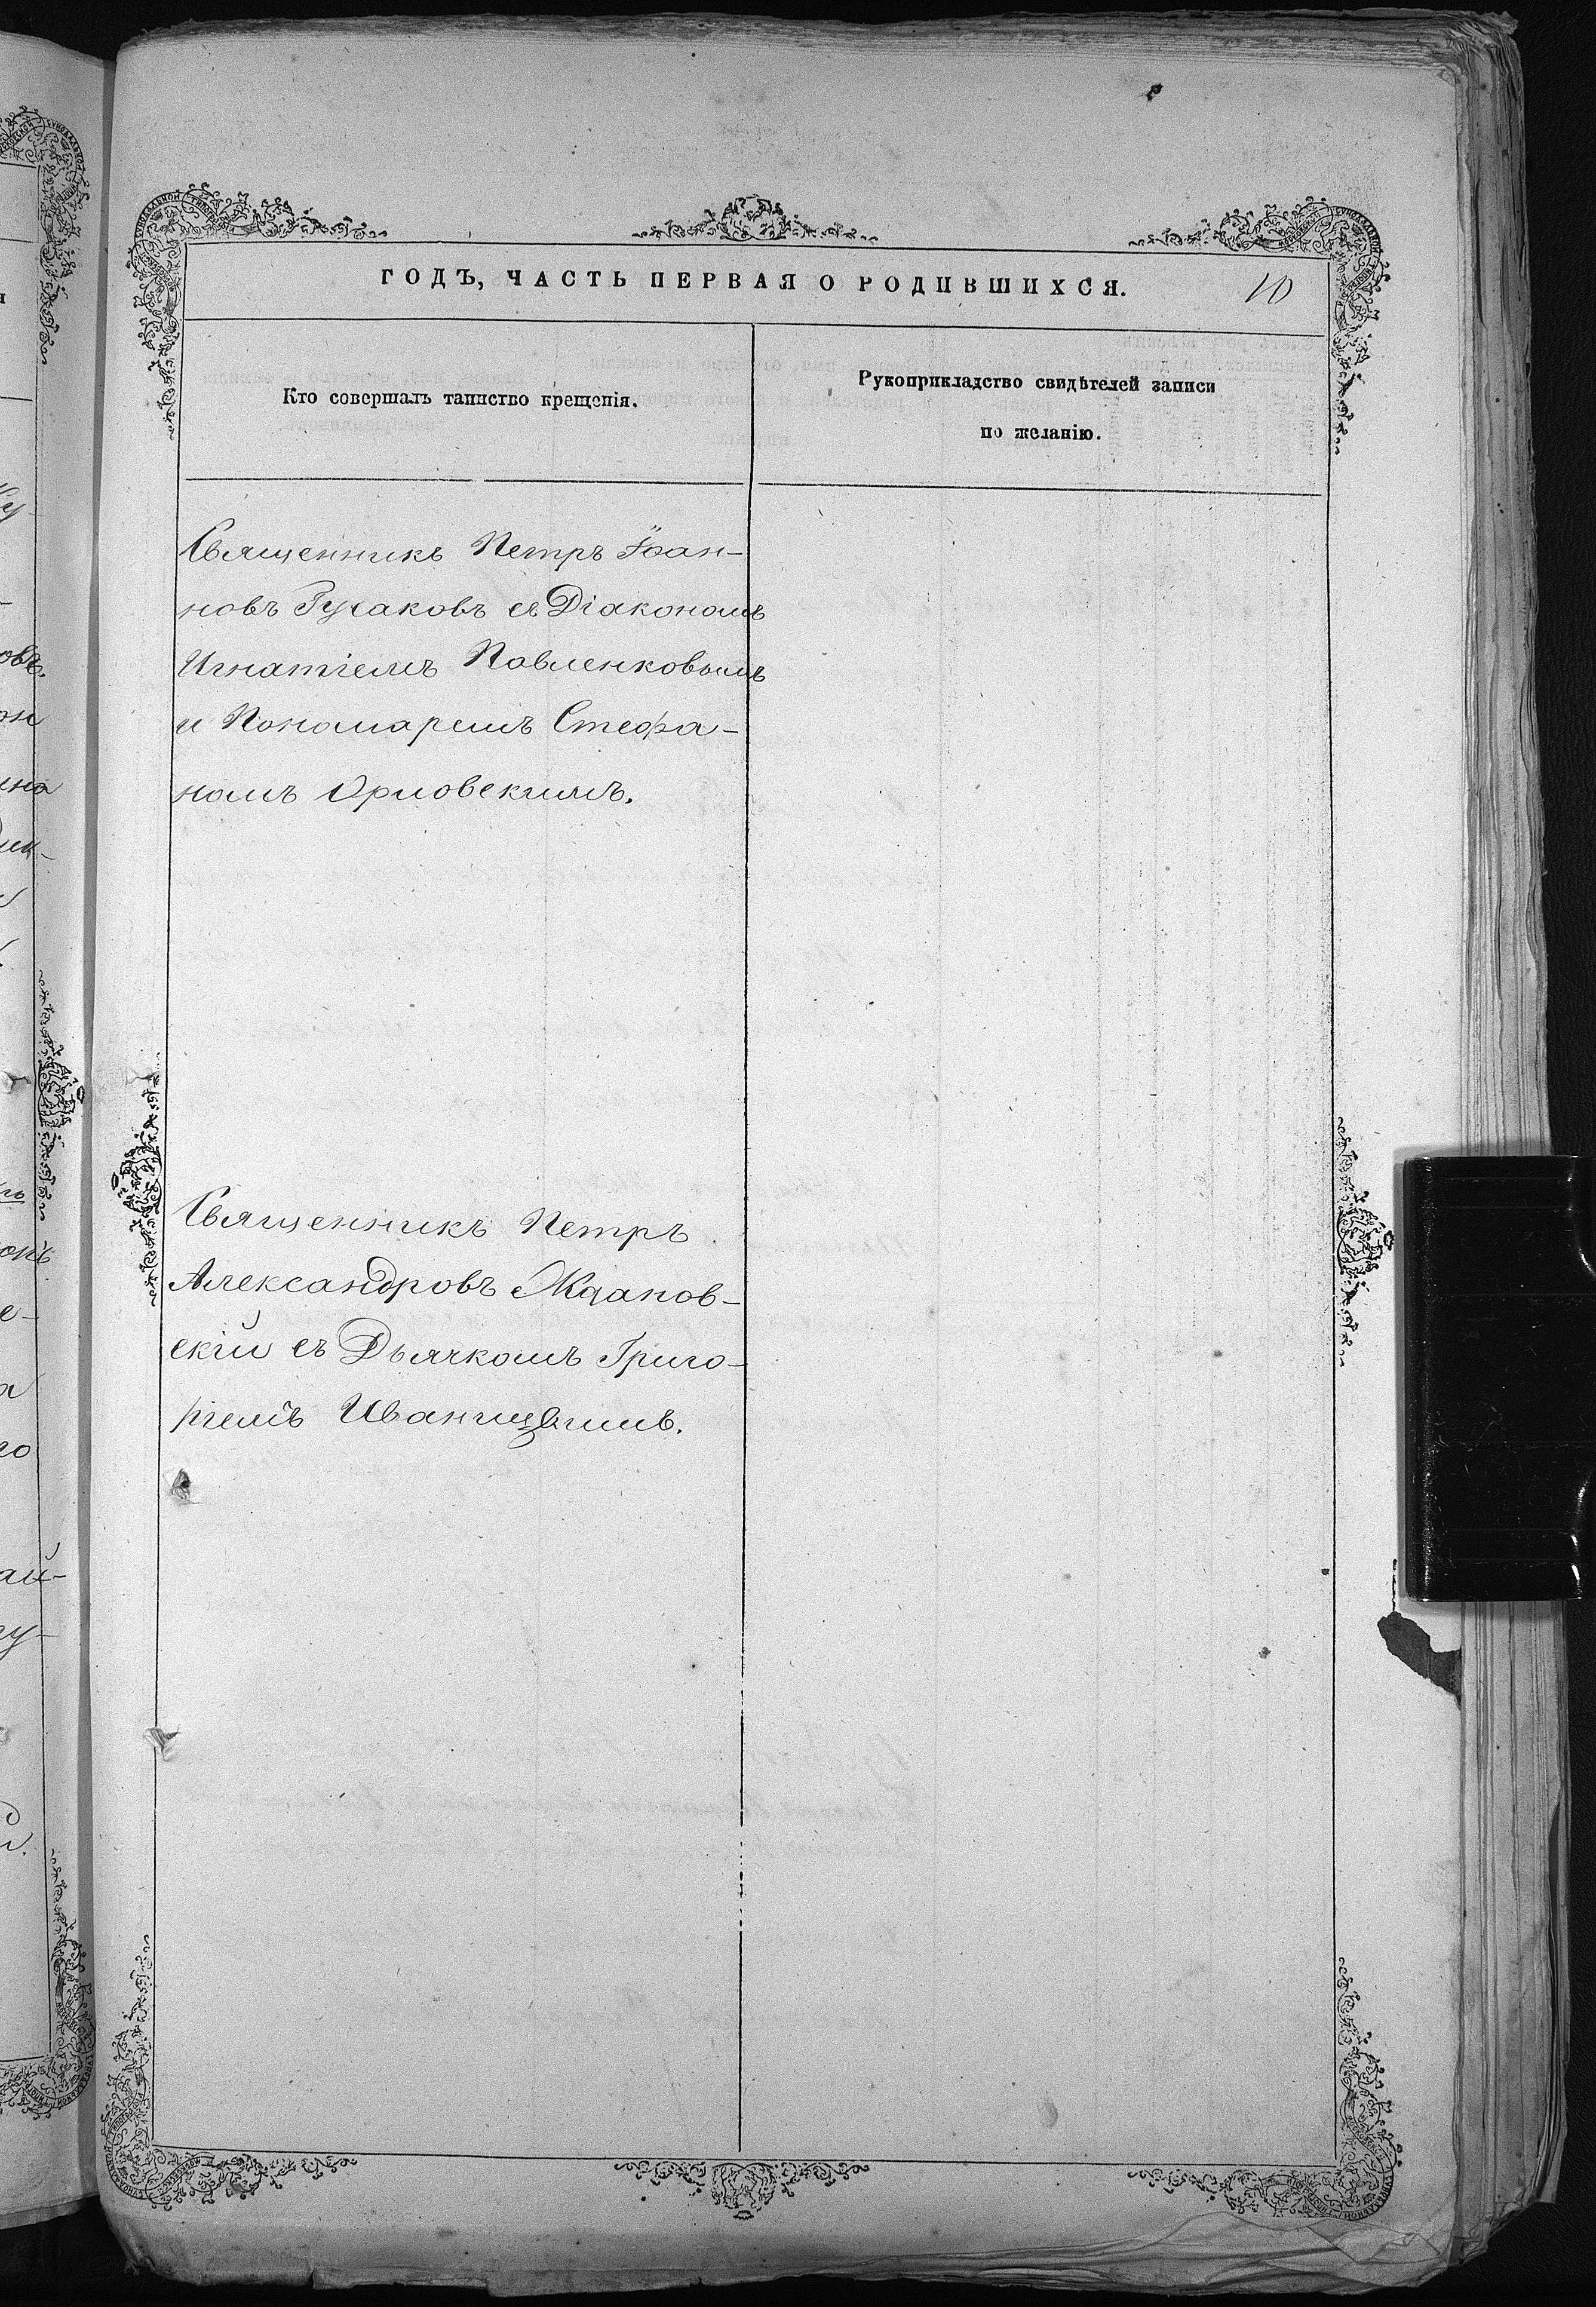 ГОДЪ, ЧАСТЬ ПЕРВАЯ О РОДИВШИХСЯ.
10
Кто совершалъ таинство крещенія.
Рукоприкладство свидѣтелей записи
по желанію.
Священникъ Петръ Іоан-
новъ Гусаковъ съ Діакономъ
Игнатіемъ Павленковымъ
и Пономаремъ Стефа-
номъ Орловскимъ.
Священникъ Петръ
Александровъ Ждановъ-
скій съ Дьячкомъ Григо-
ріемъ Иваницкимъ.